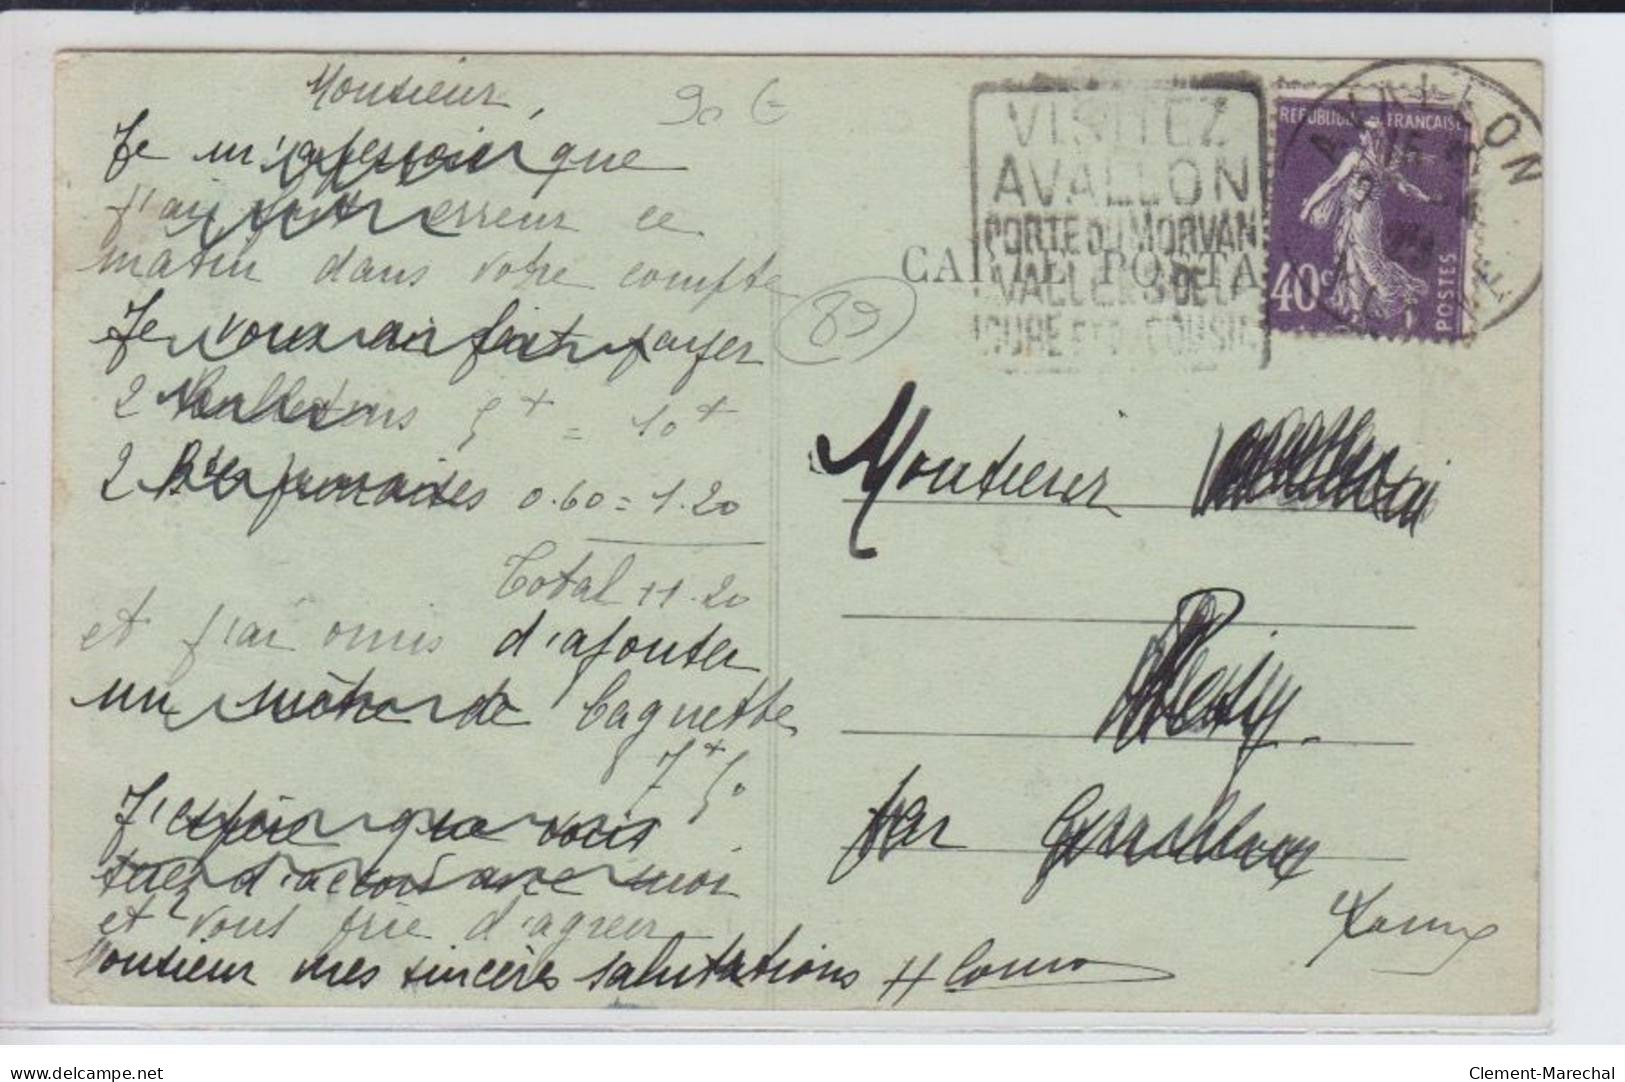 Monsieur,
90 €
Je m'aperçois que
j'ai fait erreur ce
matin dans votre compte
Je vous ai fait payer
2 5+ = 10+
2 0.60 = 1.20
Total 11.20
et j'ai omis d'ajouter
un mètre de baguette
7+50
J'espère que vous
serez d'accord avec moi
et vous prie d'agréer
Monsieur mes sincères salutations
89
VISITEZ
AVALLON
PORTE DU MORVAN
VALLEES DE LA
CURE ET DU COUSIN
CARTE POSTA
REPUBLIQUE FRANÇAISE
40c
POSTES
AVALLON
15
YONNE
Monsieur
par
Yonne
Clement-Marechal
www.delcampe.net